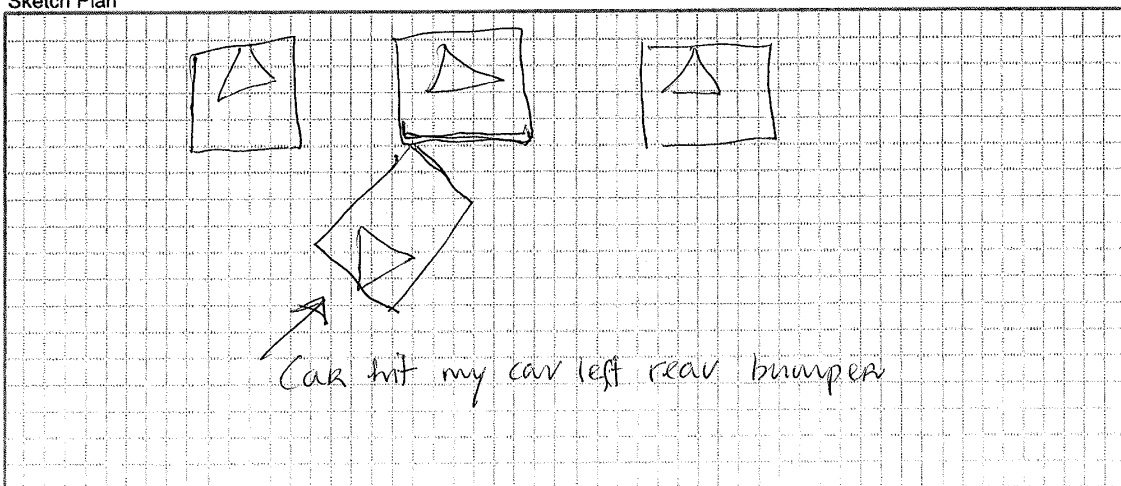 Sketch Plan
Car hit my car left rear bumper